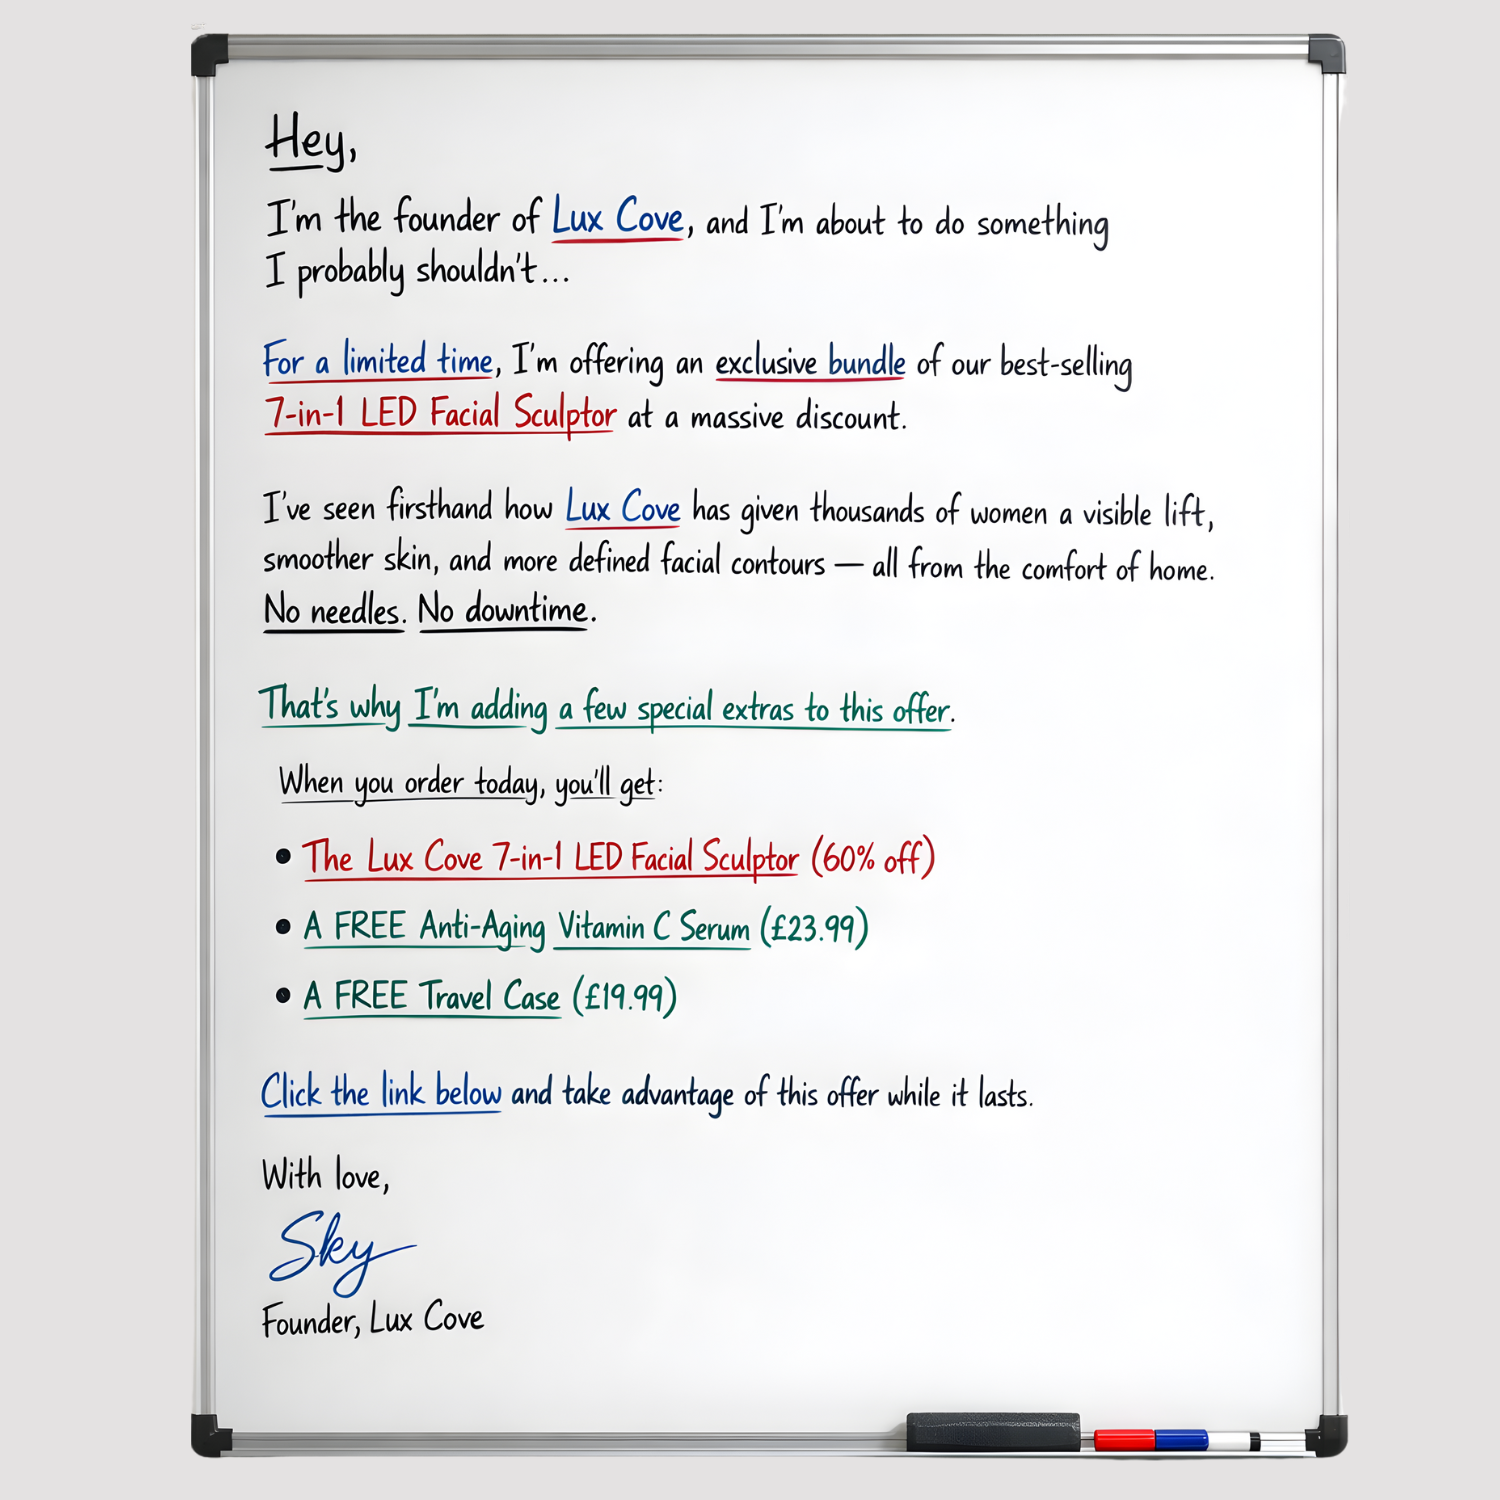 Hey,
I'm the founder of Lux Cove, and I'm about to do something
I probably shouldn't...
For a limited time, I'm offering an exclusive bundle of our best-selling
7-in-1 LED Facial Sculptor at a massive discount.
I've seen firsthand how Lux Cove has given thousands of women a visible lift,
smoother skin, and more defined facial contours — all from the comfort of home.
No needles. No downtime.
That's why I'm adding a few special extras to this offer.
When you order today, you'll get:
• The Lux Cove 7-in-1 LED Facial Sculptor (60% off)
• A FREE Anti-Aging Vitamin C Serum (£23.99)
• A FREE Travel Case (£19.99)
Click the link below and take advantage of this offer while it lasts.
With love,
Sky
Founder, Lux Cove